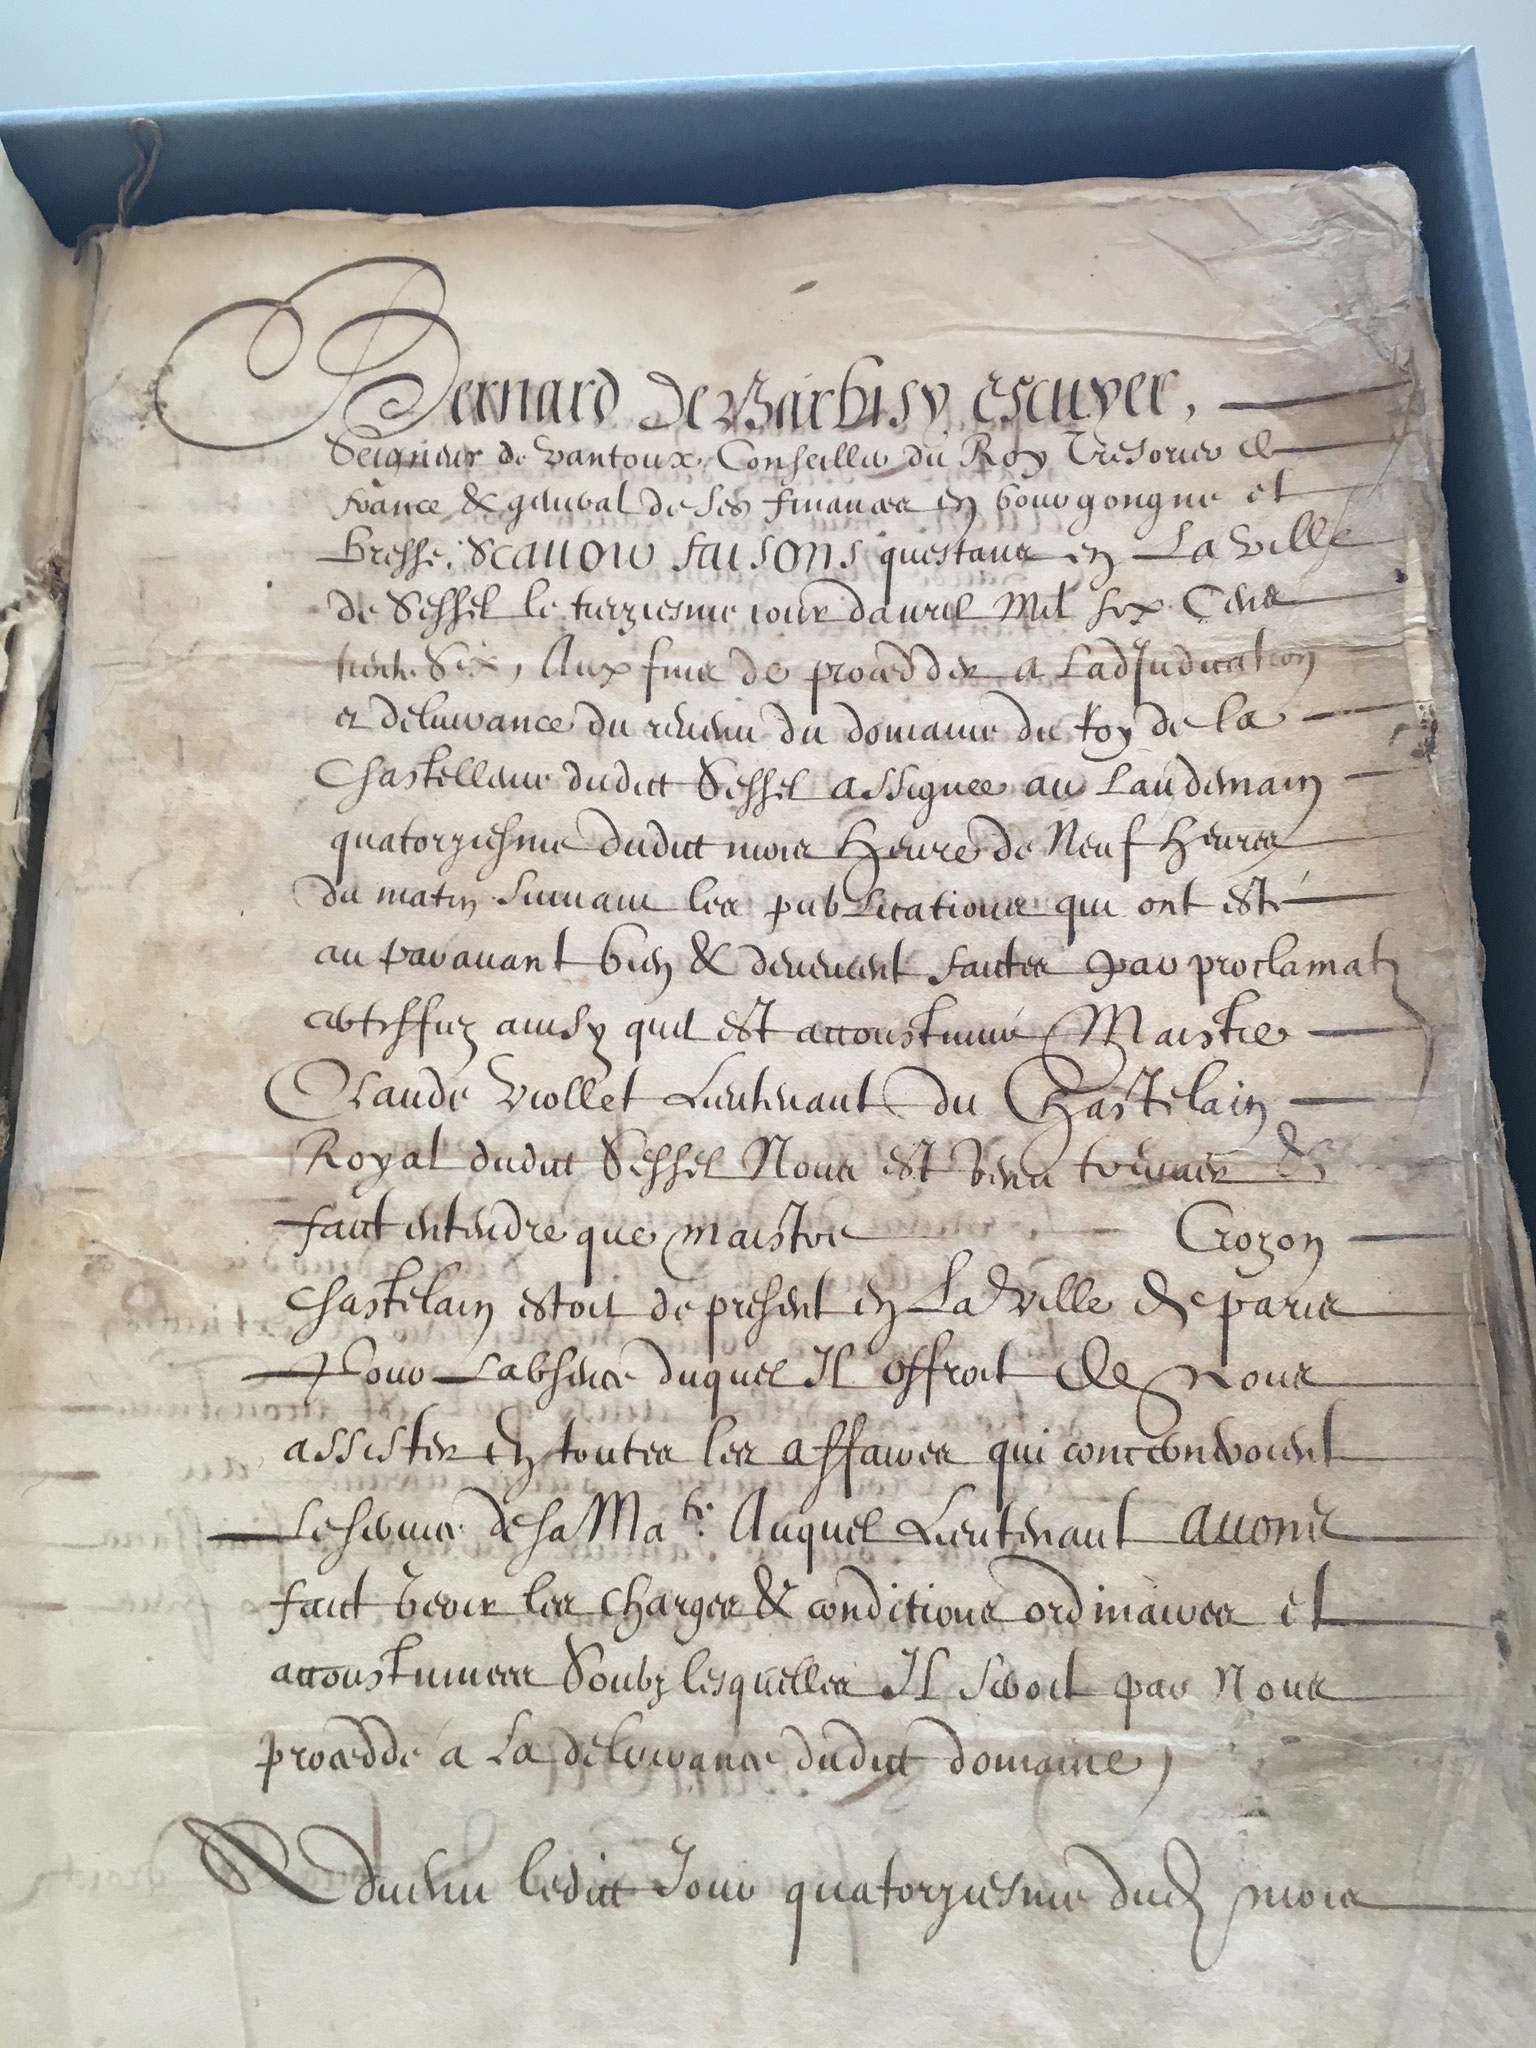 Bernard de Barbisy escuyer,
Seigneur de vantoux, Conseiller du Roy Tresorier de
france & general de ses finances en bourgongne et
bresse. Scauoir faisons questans en La ville
de Seyssel le treziesme iour dauril Mil six Cens
trente Six, Aux fins de procedder a Ladjudication
et deliurance du reuenu du domaine du Roy de la
Chastellenie dudict Seyssel assignee au Landemain
quatorziesme dudict mois Heure de Neuf Heures
du matin suiuant les publications qui ont esté
au parauant bien & deuement faictes par proclamat
et affiches ainsy quil est accoustumé Maistre
Claude Viollet Lieutenant du Chastelain
Royal dudict Seyssel Nous est venu trouuer &
faict entendre que maistre Crozon
Chastelain estoit de present en La Ville de paris
Pour Labsence duquel Il offroit de Nous
assister en toutes les affaires qui concernoient
Le seruice de sa Ma.te Auquel Lieutenant auons
faict veoir les charges & conditions ordinaires et
accoustumees Soubz lesquelles Il seroit par Nous
procedde a La deliurance dudict domaine,
Aduenu ledict Jour quatorziesme dud mois